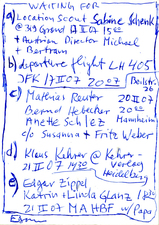 WAITING FOR
a) Location Scout Sabine Schenk
@ 39 Grand A II 07 15
+ Austrian Director Michael
+ Bertram
b) departure flight LH 405
JFK 17 II 07 20 07
c) Mathias Reuter 20 II 07
Bernd Hebecker
Anette Mannheim
c/o Susanna + Fritz Weber
d) Klaus Kehrer @ Kehrer
21 II 07 1430 Verlag
Heidelberg
e) Edgar Zippel
Katrin + Linda Glanz
21 II 07 MA HBF w/ Papa